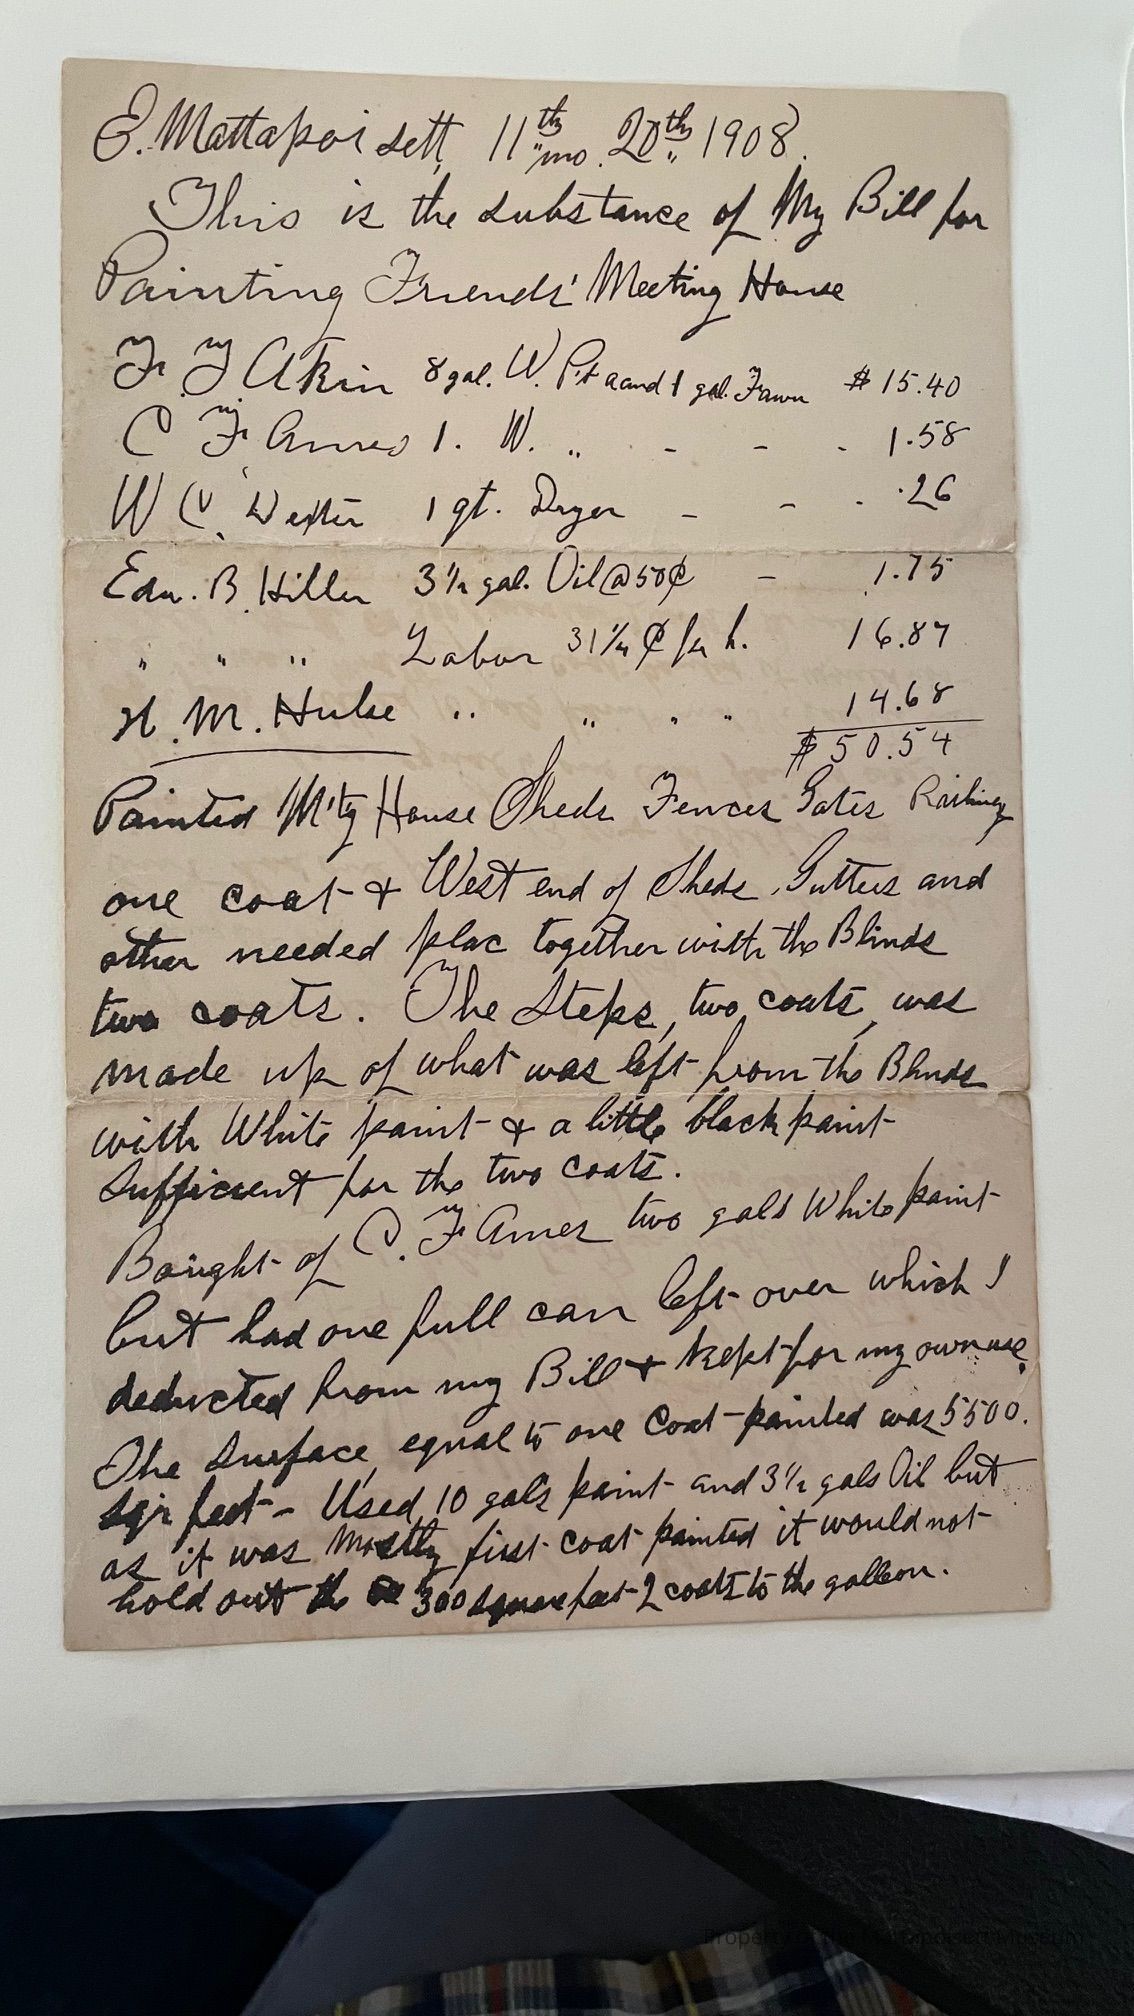 E. Mattapoisett, 11th mo. 20th 1908.
This is the substance of My Bill for
Painting Friends' Meeting House
F. F Akin 8 gal. W. P't aand 1 gal. Fawn $15.40
C F Ames 1. W. " - - - 1.58
W C, Dexter 1 qt. Dryer - - - .26
Edw. B. Hiller 3 1/2 gal. Oil @ 50¢ - 1.75
" " " Labor 31 1/4 ¢ per h. 16.87
H. M. Hulse " " " " 14.68
$50.54
Painted M'tg House Sheds Fences Gates Railings
one coat & West end of Sheds, Gutters and
other needed plac together with the Blinds
two coats. The Steps, two coats, was
made up of what was left from the Blinds
with White paint & a little black paint
Sufficient for the two coats.
Bought of C. F Ames two gals White paint
but had one full can left over which I
deducted from my Bill & kept for my own use.
The Surface, equal to one Coat painted was 5500.
sqr feet - Used 10 gals paint and 3 1/2 gals Oil but
as it was Mostly first coat painted it would not
hold out the 300 square feet 2 coats to the gallon.
Property of the Mattapoisett Museum